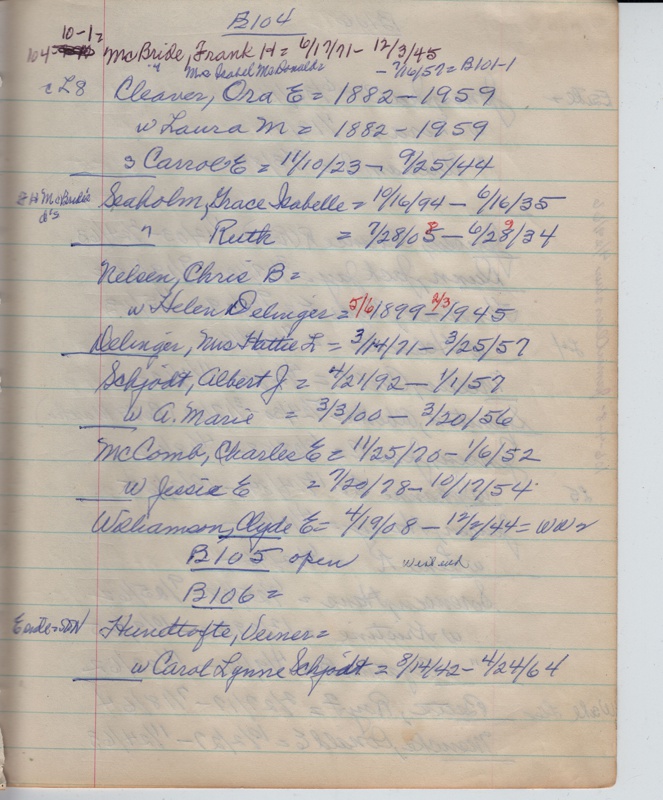 B104
10-1=
104 McBride, Frank H = 6/17/71 - 12/3/45
" Mrs Isabel McDonald = - 7/16/57 = B101-1
L8 Cleaver, Ora E = 1882 - 1959
w Laura M = 1882 - 1959
s Carrol E = 11/10/23 - 9/25/44
F H McBride's Seaholm, Grace Isabelle = 10/16/94 - 6/16/35
d's " Ruth = 7/28/05 8 - 6/28/34 9
Nelsen, Chris B =
w Helen Delinger = 5/6 1899 - 2/3 1945
Delinger, Mrs Hattie L = 3/14/71 - 3/25/57
Schjodt, Albert J = 4/21/92 - 1/1/57
w A. Marie = 3/3/00 - 3/20/56
McComb, Charles E = 11/25/70 - 1/6/52
w Jessie E = 7/20/78 - 10/17/54
Williamson, Clyde E = 4/19/08 - 12/2/44 = WW2
B105 open West end
B106 =
Hundtofte, Verner =
w Carol Lynne Schjodt = 8/14/42 - 4/24/64